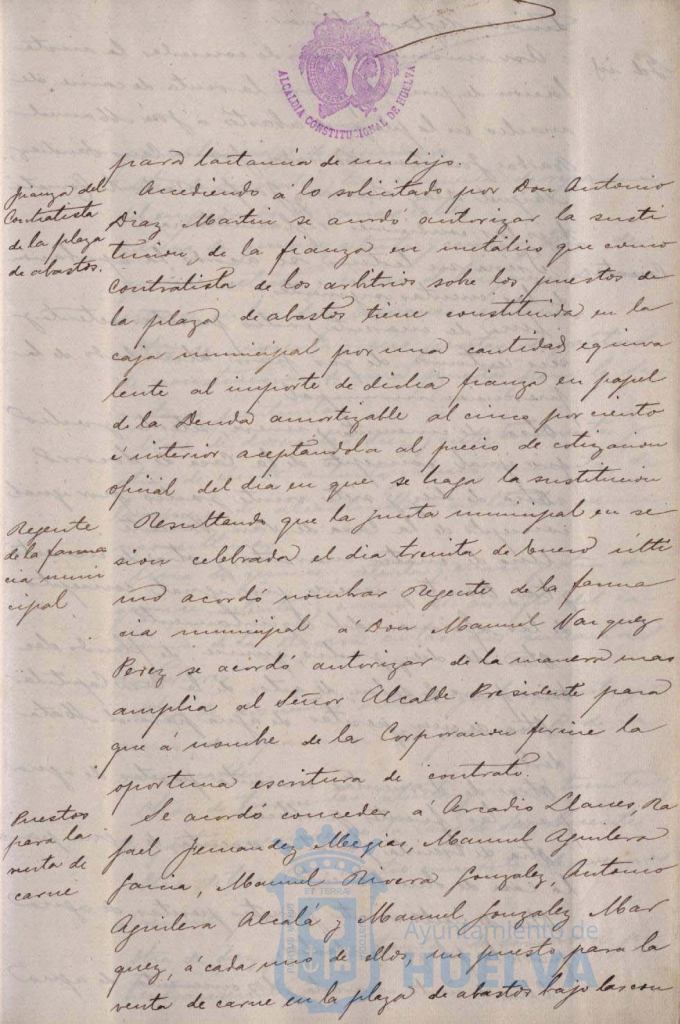 ALCALDIA CONSTITUCIONAL DE HUELVA
para lactancia de un hijo.
Fianza del
Contratista
de la plaza
de abastos.
Accediendo á lo solicitado por Don Antonio
Diaz Martin se acordó autorizar la susti
tucion de la fianza en metálico que como
contratista de los arbitrios sobre los puestos de
la plaza de abastos tiene constituida en la
caja municipal por una cantidad equiva
lente al importe de dicha fianza en papel
de la Deuda amortizable al cinco por ciento
é interior aceptándola al precio de cotizacion
oficial del dia en que se haga la sustitucion
Regente
de la farma
cia muni
cipal
Resultando que la junta municipal en se
sion celebrada el dia treinta de Enero ulti
mo acordó nombrar Regente de la farma
cia municipal á Don Manuel Vazquez
Perez se acordó autorizar de la manera mas
amplia al Señor Alcalde Presidente para
que á nombre de la Corporacion firme la
oportuna escritura de contrato.
Puestos
para la
venta de
carne
Se acordó conceder á Arcadio Llanes, Ra
fael Fernandez Megias, Manuel Aguilera
Garcia, Manuel Rivera Gonzalez, Antonio
Aguilera Alcalá y Manuel Gonzalez Mar
quez, á cada uno de ellos, un puesto para la
venta de carne en la plaza de abastos bajo las con
Ayuntamiento de
HUELVA